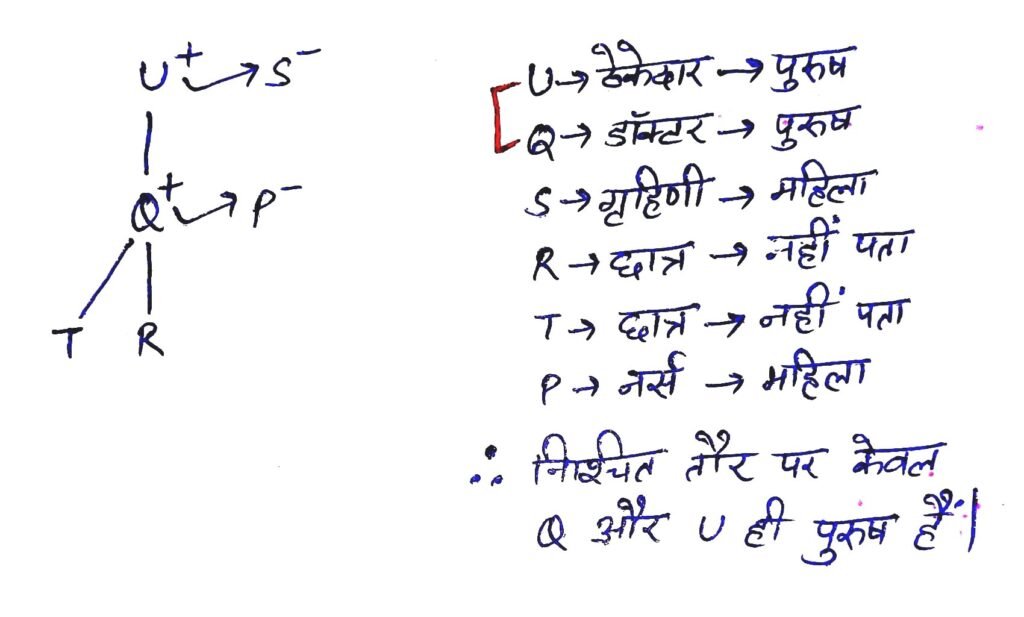 U⁺ → S⁻
Q⁺ → P⁻
T R
U → ठेकेदार → पुरुष
Q → डॉक्टर → पुरुष
S → गृहिणी → महिला
R → छात्र → नहीं पता
T → छात्र → नहीं पता
P → नर्स → महिला
∴ निश्चित तौर पर केवल
Q और U ही पुरुष हैं।